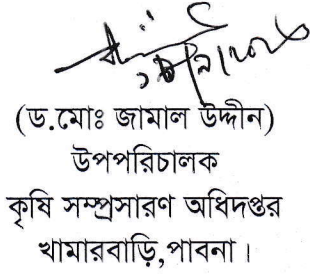 (ড.মোঃ জামাল উদ্দীন)
উপপরিচালক
কৃষি সম্প্রসারণ অধিদপ্তর
খামারবাড়ি,পাবনা।